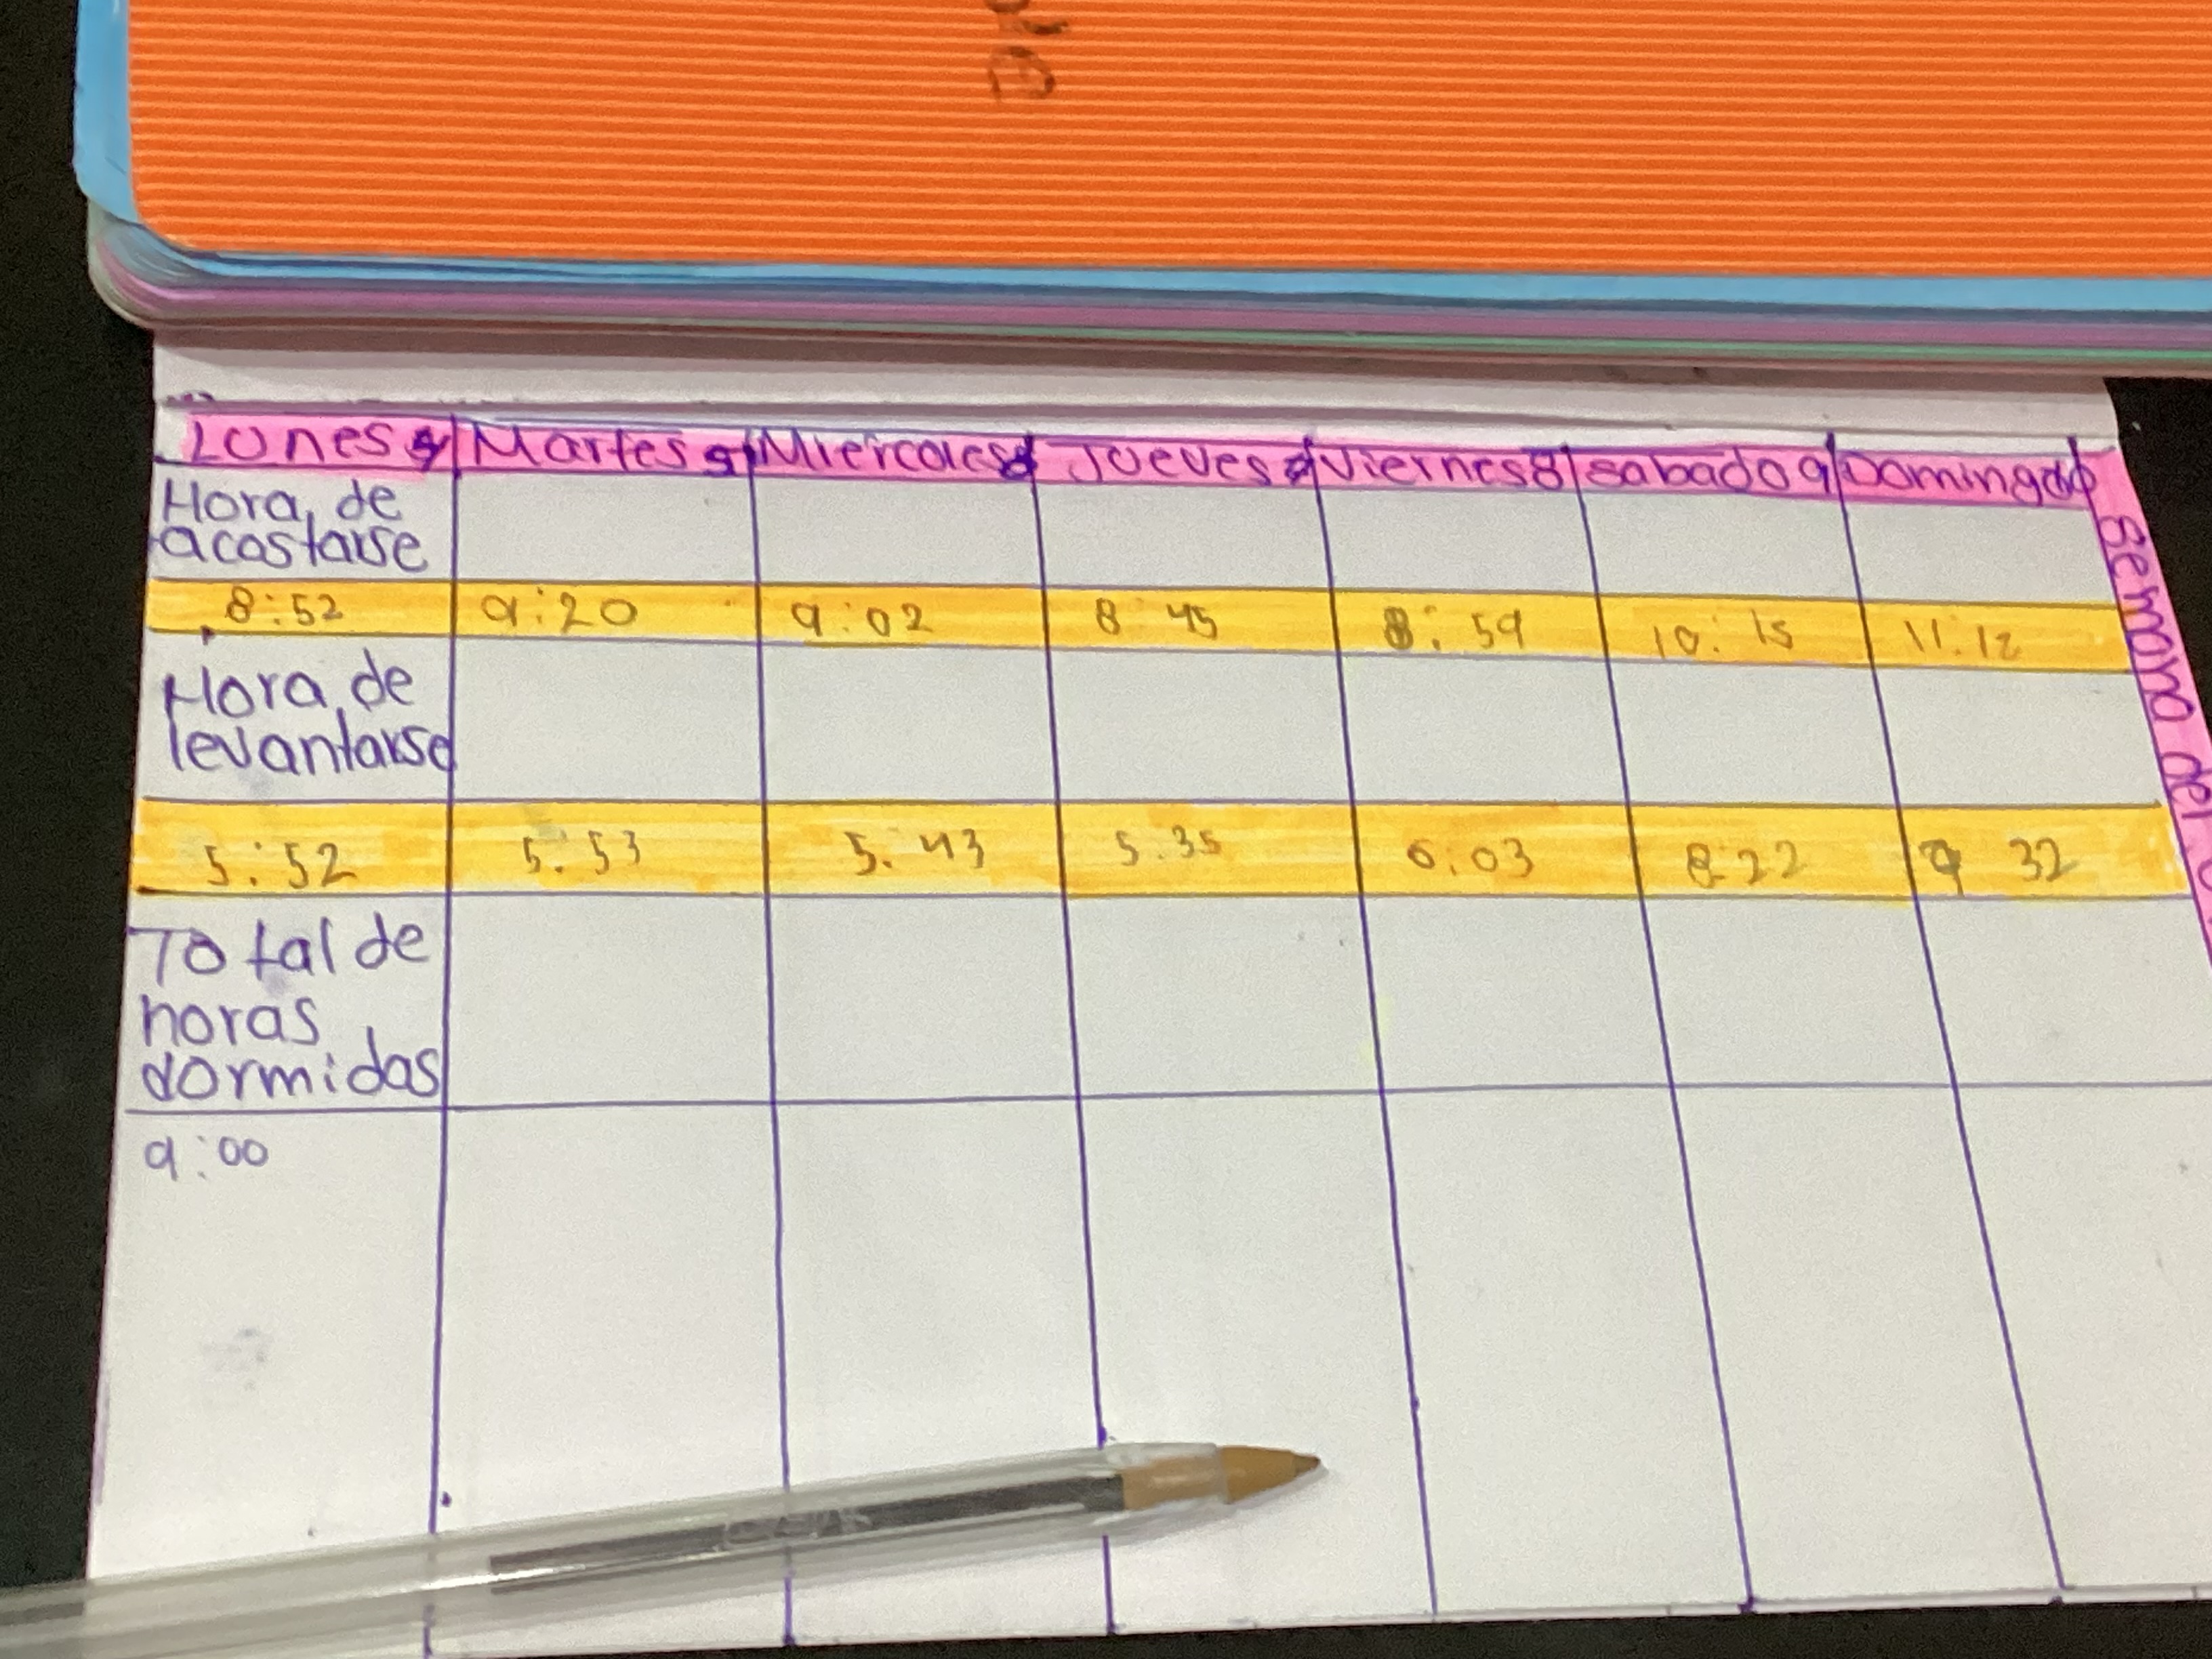 Lones 4 Martes 5 Miercoles 6 Jueves 7 Viernes 8 sabado 9 Domingo 10
Hora de
acostarse
8:52 9:20 9:02 8 45 8:59 10:15 11:12
Hora de
levantarse
5:52 5.53 5.43 5.35 6:03 8:22 9 32
Total de
horas
dormidas
9:00
Semana del